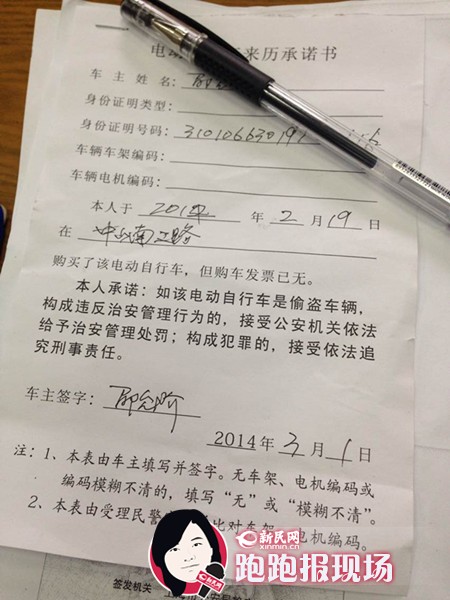 电动 来历承诺书
车 主 姓 名：邵
身份证明类型：
身份证明号码：310106630191
车辆车架编码：
车辆电机编码：
本人于 2012 年 2 月 19 日
在 中 南 路
购买了该电动自行车，但购车发票已无。
本人承诺：如该电动自行车是偷盗车辆，
构成违反治安管理行为的，接受公安机关依法
给予治安管理处罚；构成犯罪的，接受依法追
究刑事责任。
车主签字：邵
2014年 3 月 1 日
注：1、本表由车主填写并签字。无车架、电机编码或
编码模糊不清的，填写“无”或“模糊不清”。
2、本表由受理民警 比对车架、电机编码。
新民网
xinmin.cn
跑跑报现场
签发机关